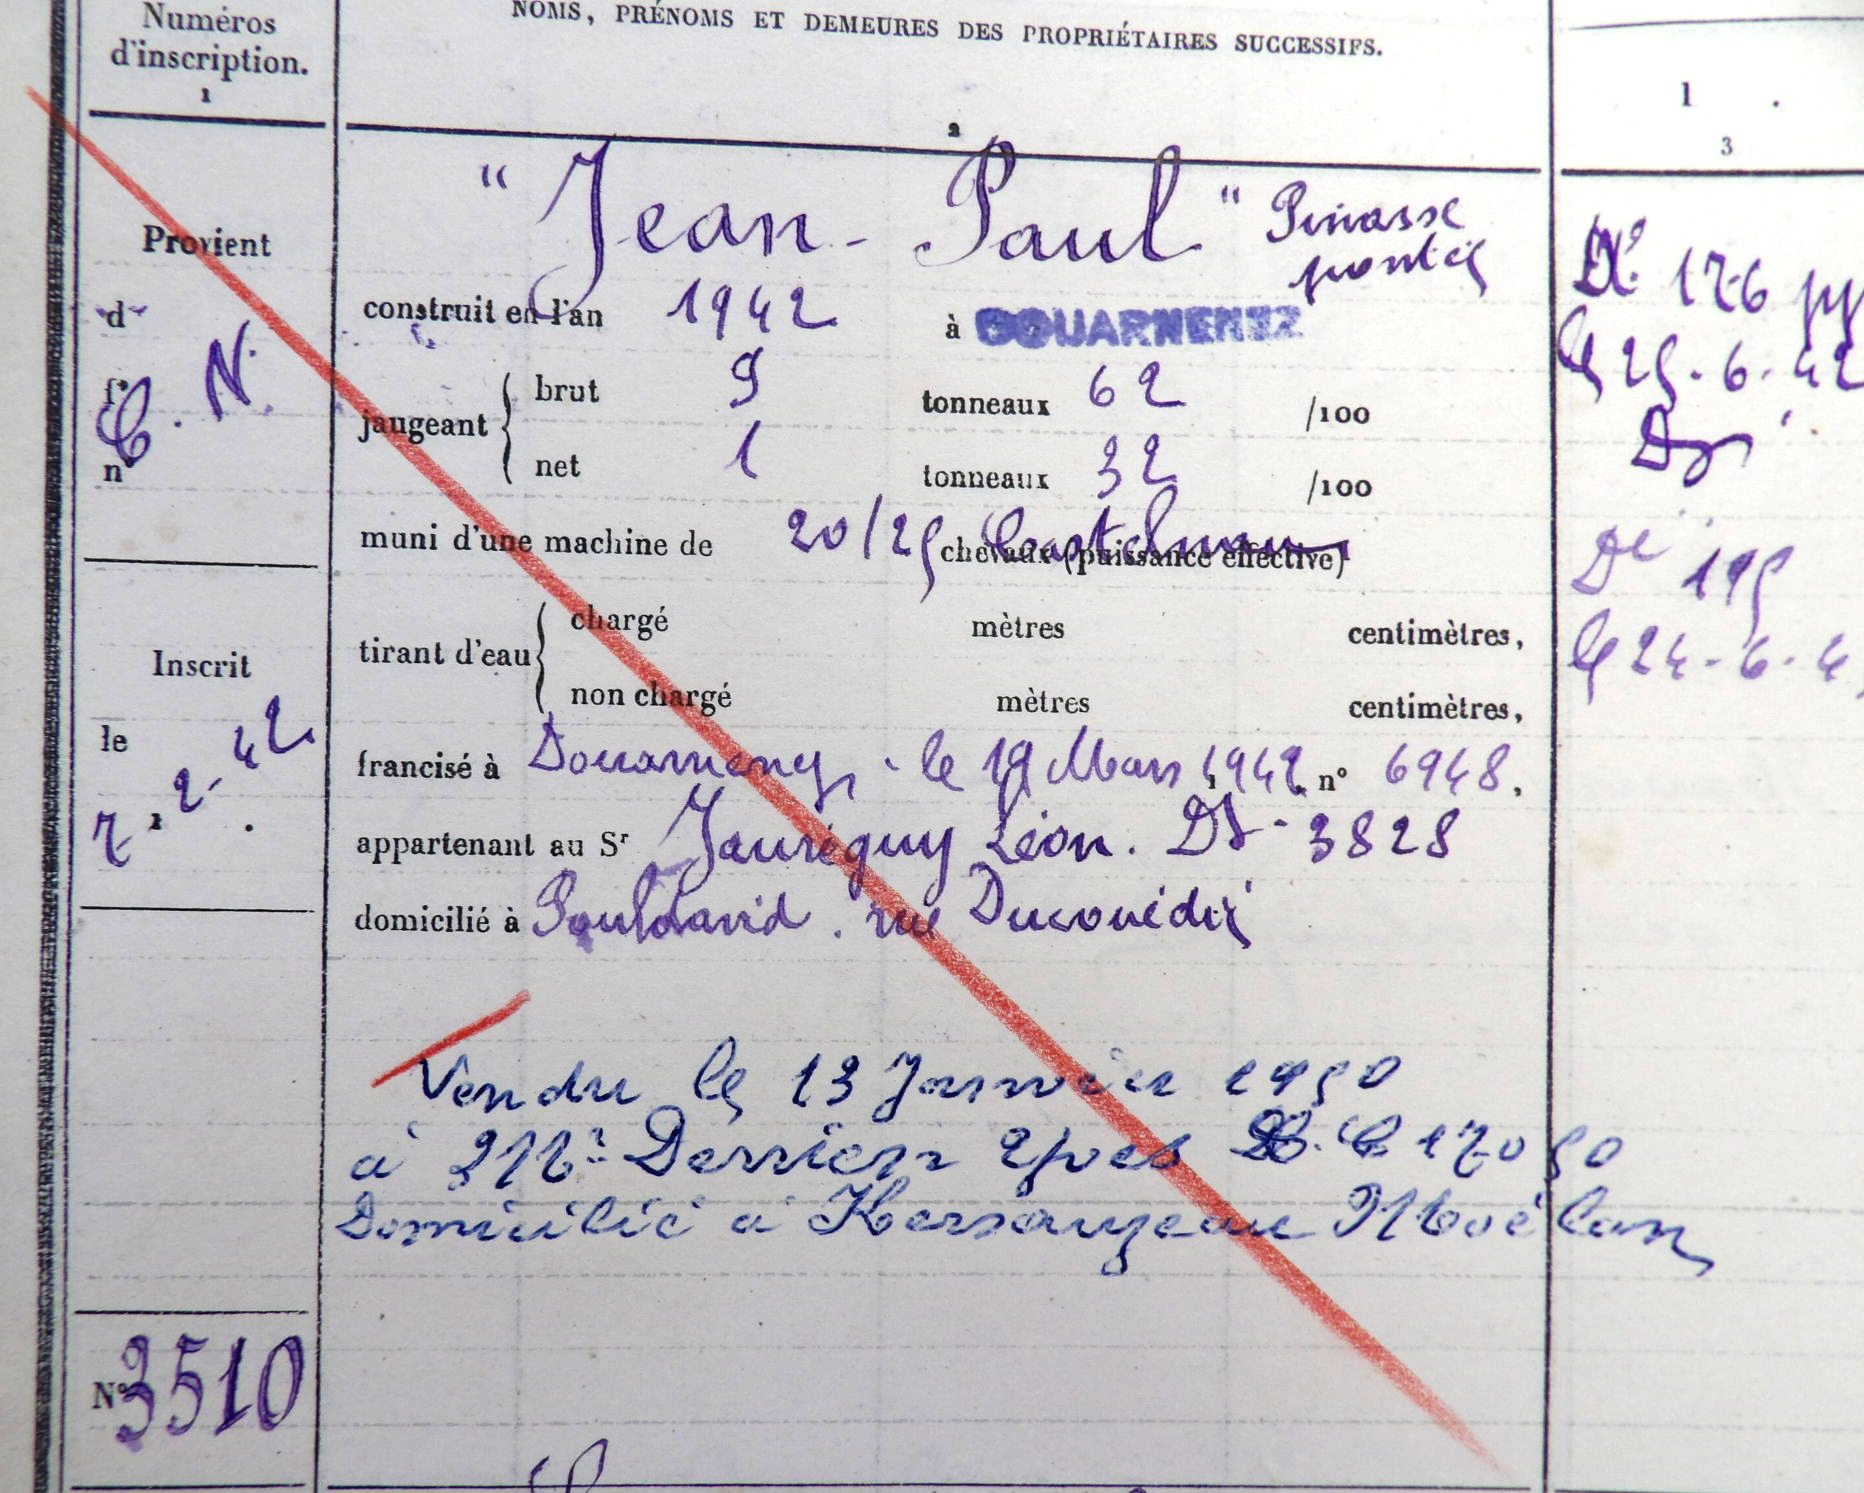 Numéros
d'inscription.
1
NOMS, PRÉNOMS ET DEMEURES DES PROPRIÉTAIRES SUCCESSIFS.
2
1
3
Provient
d
f°
C. N.
n°
Inscrit
le
7-2-42
N° 3510
" Jean-Paul " Pinasse
pontée
construit en l'an 1942 à DOUARNENEZ
jaugeant { brut 9 tonneaux 62 /100
net 1 tonneaux 32 /100
muni d'une machine de 20/25 chevaux (puissance effective)
tirant d'eau { chargé mètres centimètres,
non chargé mètres centimètres,
francisé à Douarnenez le 19 Mars 1942 n° 6948,
appartenant au Sr Jauréguy Léon. DZ 3828
domicilié à Pouldavid. rue Ducouédic
Vendu le 13 Janvier 1950
à Mr Derrien Yves C 17050
Domicilié à Kersauzeau Moëlan
176
le 25-6-42
195
le 24-6-4